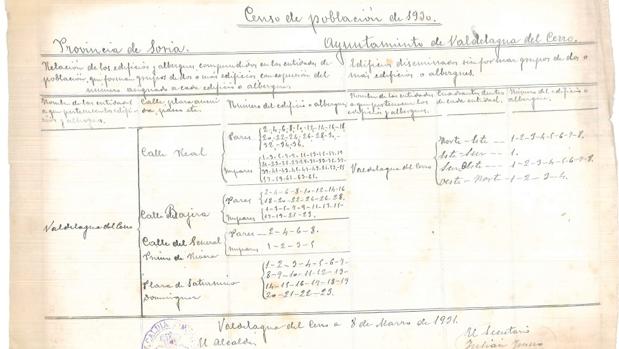 Censo de población de 1930.
Provincia de Soria. Ayuntamiento de Valdelagua del Cerro.
Relación de los edificios y albergues comprendidos en las entidades de
población que forman grupos de dos o más edificios con expresión del
número asignado a cada edificio o albergue.
Edificios diseminados sin formar grupos de dos o
más edificios o albergues.
Nombre de las entidades
a que pertenecen los edificios y albergues.
Calle, plaza
Número del edificio o albergue
Nombre de las entidades
a que pertenecen los
Cuadrante dentro
de cada entidad.
Número del edificio o
albergue.
Valdelagua del Cerro
Calle Real
Pares
2-4-6-8-10-12-14-16-18
20-22-24-26-28-30-
32-34-36-
Impares
1-3-5-7-9-11-13-15-17-19
57-59-61-63-65.
Calle Bajera
Pares
2-4-6-8-10-12-14-16
18-20-22-24-26-28.
Impares
1-3-5-7-9-11-13-15-
17-19-21-23.
Calle del General
Primo de Rivera
Pares - 2-4-6-8.
Impares 1-2-3-5
Plaza de Saturnino
Dominguez
1-2-3-4-5-6-7-
8-9-10-11-12-13-
14-15-16-17-18-19
20-21-22-23.
Valdelagua del Cerro
Norte-Este - 1-2-3-4-5-6-7-8.
Este-Sur - 1.
Sur-Oeste - 1-2-3-4-5-6-7-8-
Oeste-Norte - 1-2-3-4.
Valdelagua del Cerro a 8 de Marzo de 1931.
El Alcalde
El Secretario
Julián